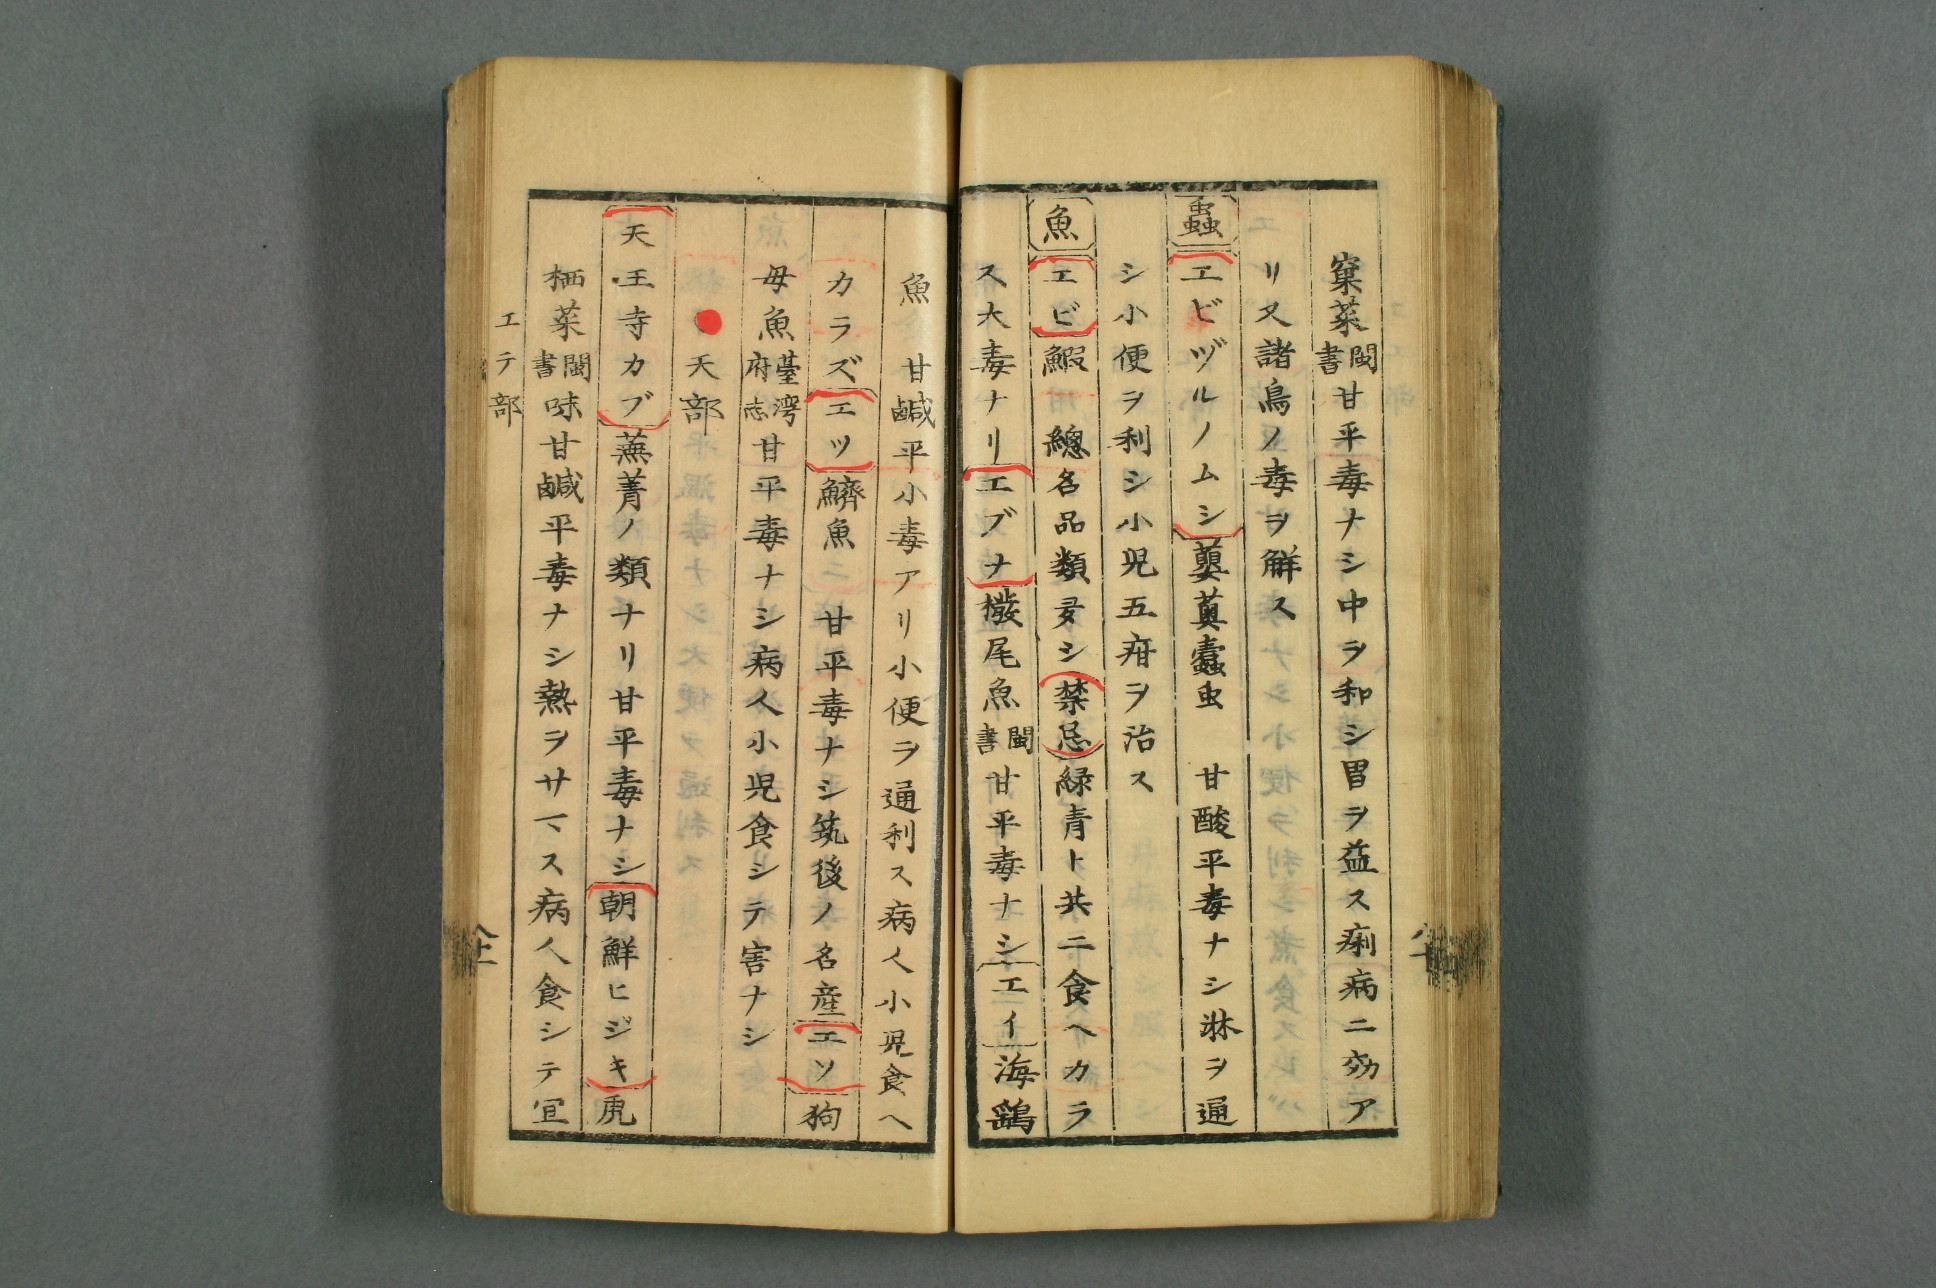 窠菜閩書甘平毒ナシ中ヲ和シ胃ヲ益ス痢病ニ効ア
リ又諸鳥ノ毒ヲ解ス
蟲 エビヅルノムシ 蘡薁蠹虫 甘酸平毒ナシ淋ヲ通
シ小便ヲ利シ小児五疳ヲ治ス
魚 エビ 鰕 總名品類多シ 禁忌 緑青ト共ニ食ヘカラ
ス大毒ナリ エブナ 撥尾魚閩書甘平毒ナシ エイ 海鷂
魚 甘鹹平小毒アリ小便ヲ通利ス病人小児食ヘ
カラズ エツ 鱭魚 甘平毒ナシ筑後ノ名産 エソ 狗
母魚臺湾府志甘平毒ナシ病人小児食シテ害ナシ
天部
天王寺カブ 蕪菁ノ類ナリ甘平毒ナシ 朝鮮ヒジキ 鹿
栖菜閩書味甘鹹平毒ナシ熱ヲサマス病人食シテ宜
エテ部